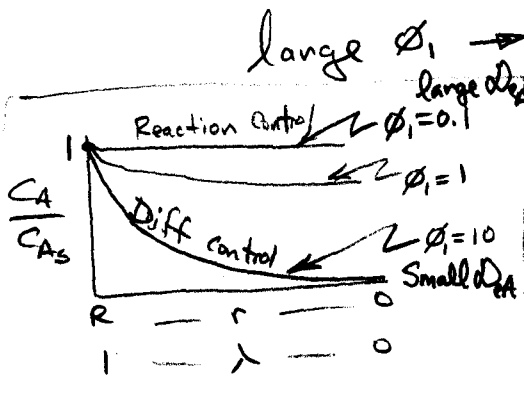 large Ø₁ →
large 𝒟e
Reaction control
Ø₁=0.1
1
Ø₁=1
C_A
C_As
Diff control
Ø₁=10
Small 𝒟eA
R — r — 0
1 — λ — 0